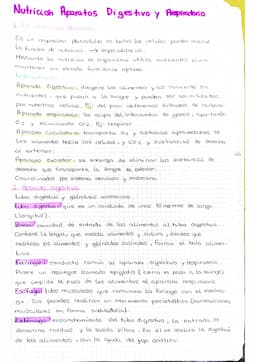 Nutrición Aparatos Digestivo y Respiratorio
1. La nutrición humana
En un organismo pluricelular no todas las células pueden realizar
la función de nutrición → especialización.
Mediante la nutrición el organismo utiliza nutrientes para
mantener un estado funcional óptimo.
Aparato digestivo: digiere los alimentos y los convierte en
nutrientes, que pasan a la sangre y pueden ser utilizados
por nuestras células. Ej: del pan obtenemos hidratos de carbono.
Aparato respiratorio: Se ocupa del intercambio de gases, aportando
O2 y eliminando CO2. Ej: respirar
Aparato circulatorio: transporta O2 y sustancias aprovechables de
los alimentos hacia las células, y CO2 y sustancias de desecho
al exterior.
Aparato excretor: se encarga de eliminar las sustancias de
desecho que transporta la sangre al exterior.
Coordinados por sistema nervioso y endocrino.
2. Aparato digestivo
Tubo digestivo y glándulas accesorias.
Tubo digestivo: que es un conducto de unos 10 metros de largo
(longitud).
Boca: cavidad de entrada de los alimentos al tubo digestivo.
Contiene la lengua, que mezcla alimentos y saliva, dientes que
mastican los alimentos y glándulas salivales. Forma el bolo alimen-
ticio.
Faringe: conducto común al aparato digestivo y respiratorio.
Posee un repliegue llamado epiglotis (cierra el paso a la laringe)
que impide el paso de los alimentos al aparato respiratorio.
Esófago: tubo musculoso que comunica la faringe con el estóma-
go. Sus paredes realizan un movimiento peristáltico (contracciones
musculares en forma
Estómago: ensanchamiento del tubo digestivo, la entrada se
denomina cardias y la salida píloro. En él se realiza la digestión
de los alimentos con la ayuda del jugo gástrico.